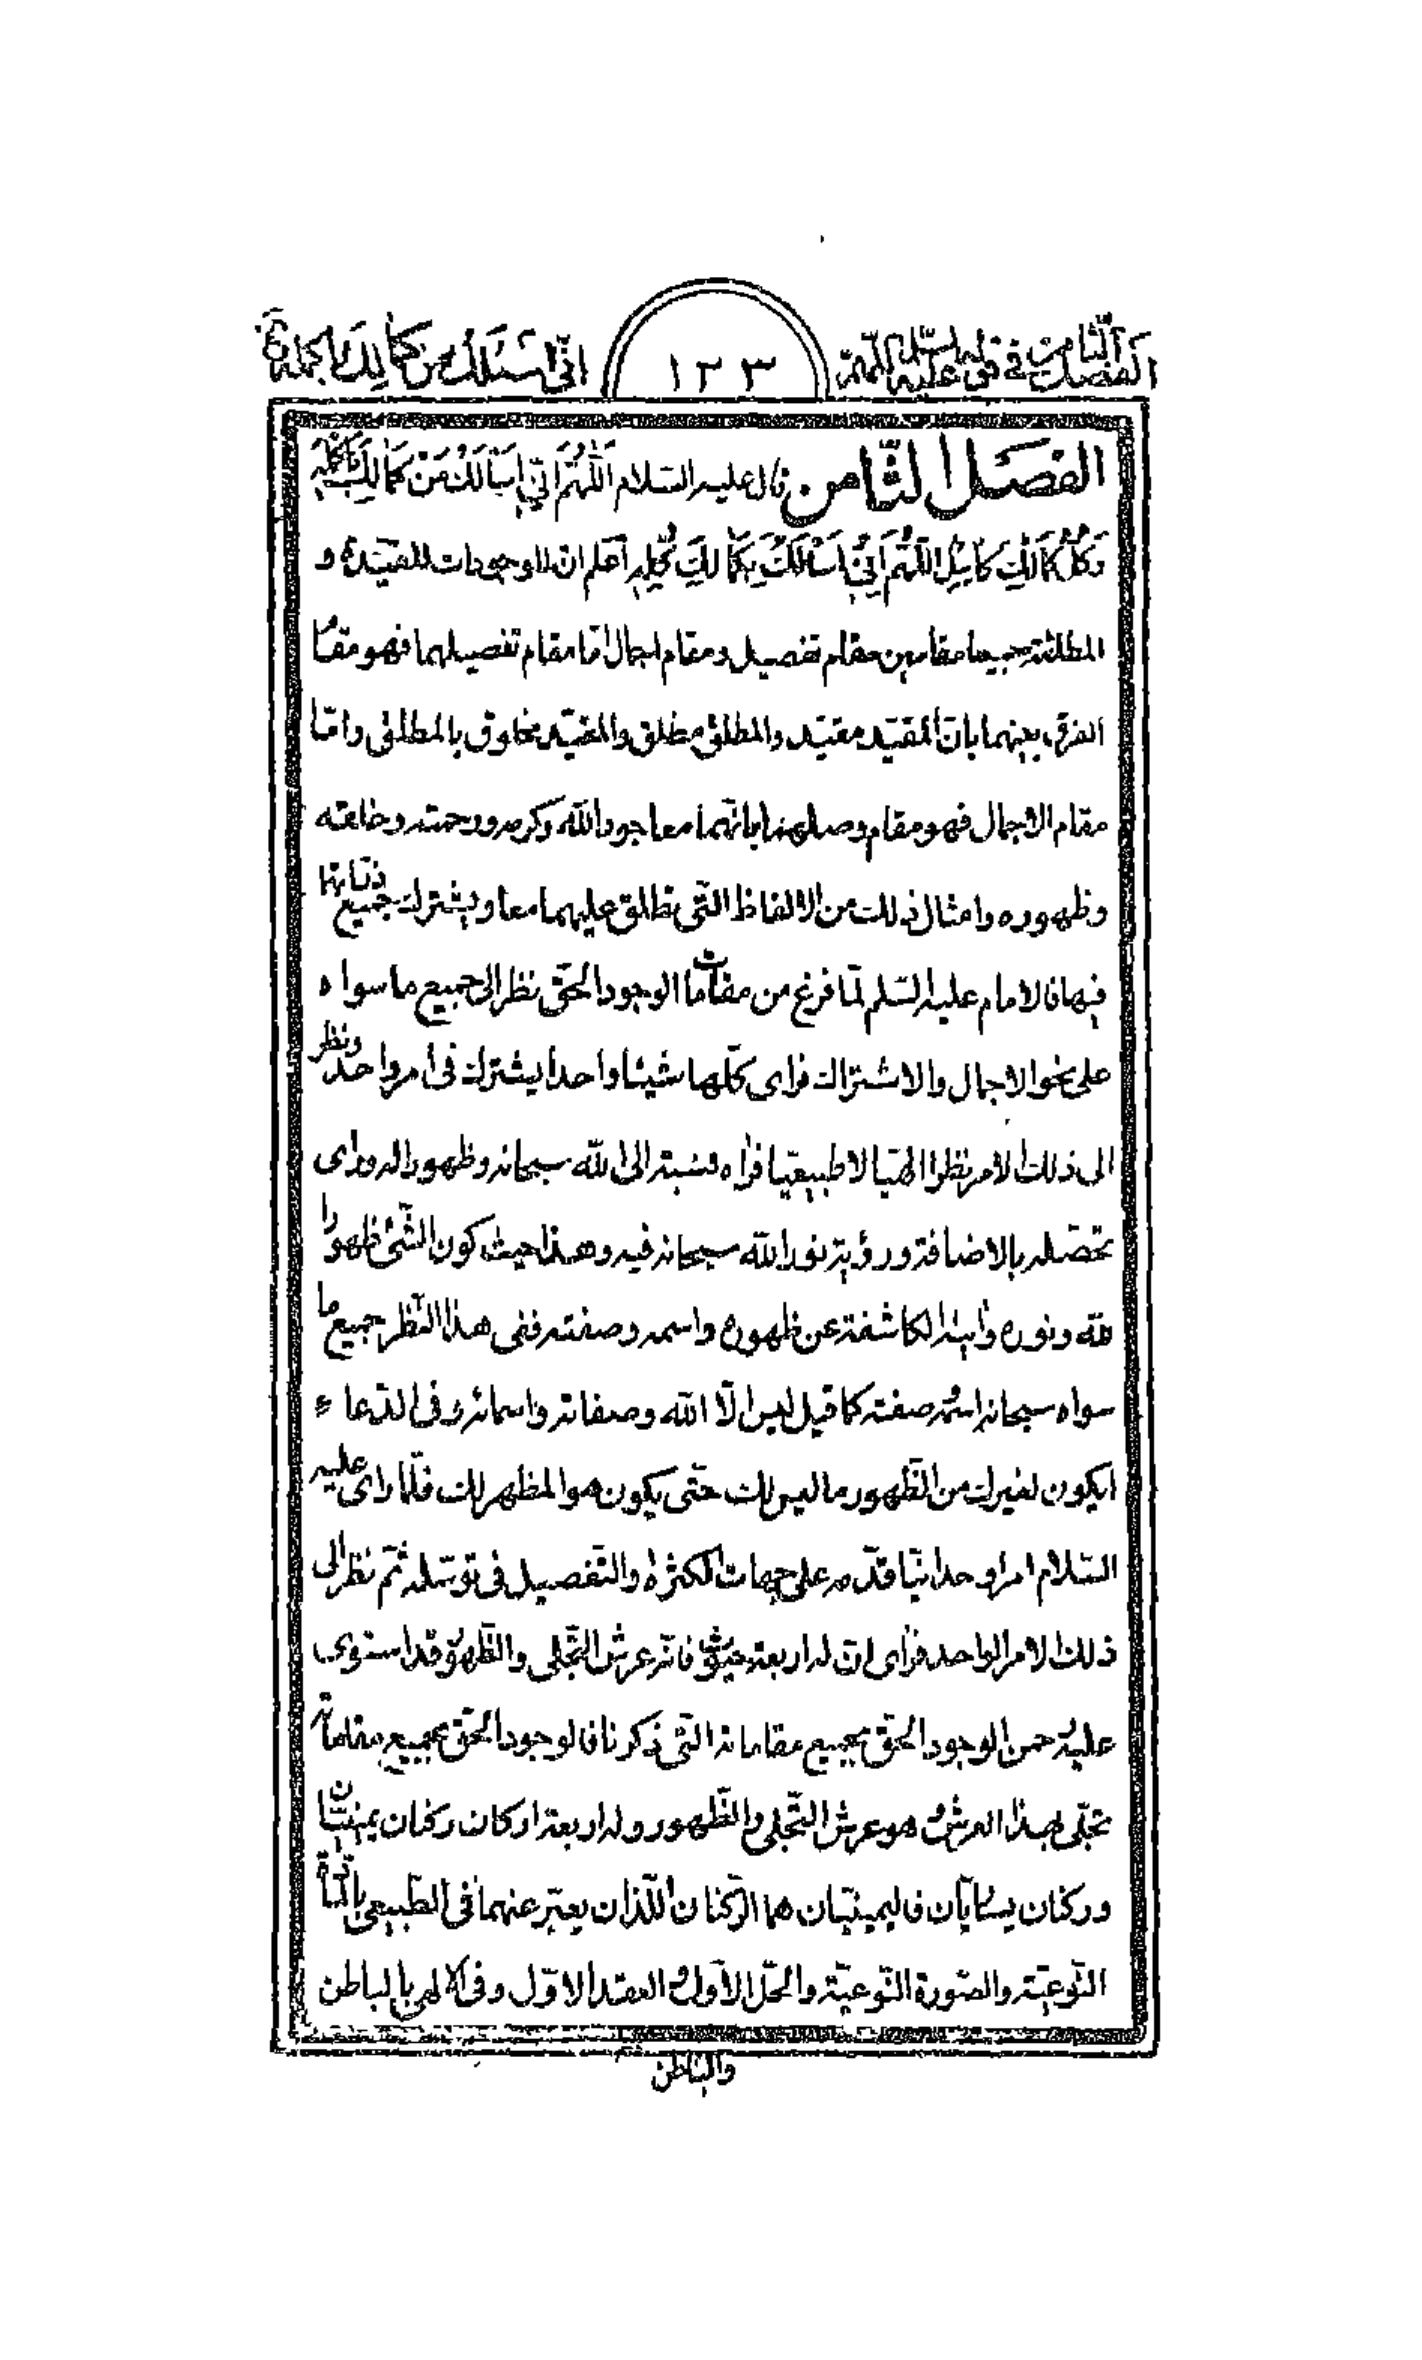 الفصل الثامن في قوله عليه السلام اللهم
١٢٣
انّى اسئلك من كمالك باكمله
الفصل الثامن قال عليه السلام اَللّٰهُمَّ اِنّي اَسْأَلُكَ مِنْ كَمَالِكَ بِاَكْمَلِهِ
وَكُلُّ كَمَالِكَ كَامِلٌ اَللّٰهُمَّ اِنّي اَسْأَلُكَ بِكَمَالِكَ كُلِّهِ اعلم ان للوجودات المقيّدة و
المطلقة جميعا مقامين مقام تفصيل ومقام اجمال امّا مقام تفصيلهما فهو مقام
الفرق بينهما بانّ المقيّد مقيّد والمطلق مطلق والمقيّد مخلوق بالمطلق وامّا
مقام الاجمال فهو مقام وصلهما بانهما معا جود الله وكرمه ورحمته وخلقته
وظهوره وامثال ذلك من الالفاظ التّى تطلق عليهما معا ويشترك جميع
فيها فالامام عليه السّلم لمّا فرغ من مقامات الوجود الحقّ نظر الى جميع ما سواه
على نحو الاجمال والاشتراك فراى كلّها شيئا واحدا يشترك فى امر واحد ونظر
الى ذلك الامر نظرا الهيّا لا طبيعيّا فراه نسبته الى الله سبحانه وظهورا له وراى
تحصّله بالاضافة ورؤية نور الله سبحانه فيه وهذا حيث كون الشّئ ظهورا
لله ونوره وايته الكاشفة عن ظهوره واسمه وصفته ففى هذا النّظر جميع ما
سواه سبحانه اسمه وصفته كما قيل ليس الّا الله وصفاته واسمائه وفى الدّعاء
ايكون لغيرك من الظّهور ما ليس لك حتّى يكون هو المظهر لك فلمّا راى عليه
السّلام امرا وحدانيّا قدّمه على جهات الكثرة والتّفصيل فى توسّله ثمّ نظر الى
ذلك الامر الواحد فراى انّ له اربعة حيوث فانّه عرش التّجلى والظّهور قد استوى
عليه رحمن الوجود الحقّ بجميع مقاماته التّى ذكرنا فالوجود الحقّ بجميع مقاماته
تجلّى بهذا العرش وهو عرش التّجلى والظّهور وله اربعة اركان ركنان يمينيّان
وركنان يساريّان فاليمينيّان هما الرّكنان اللّذان يعبّر عنهما فى الطّبيعى بالمادّة
النّوعيّة والصّورة النّوعيّة والحلّ الاوّل والعقد الاوّل وفى الالهى بالباطن
والباطن